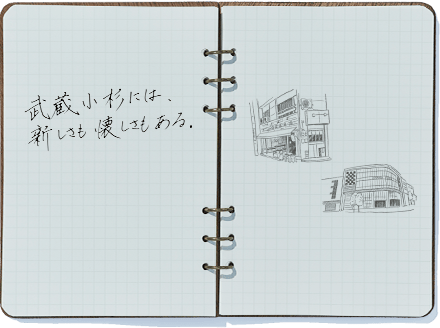 武蔵小杉には、
新しさも懐しさもある。